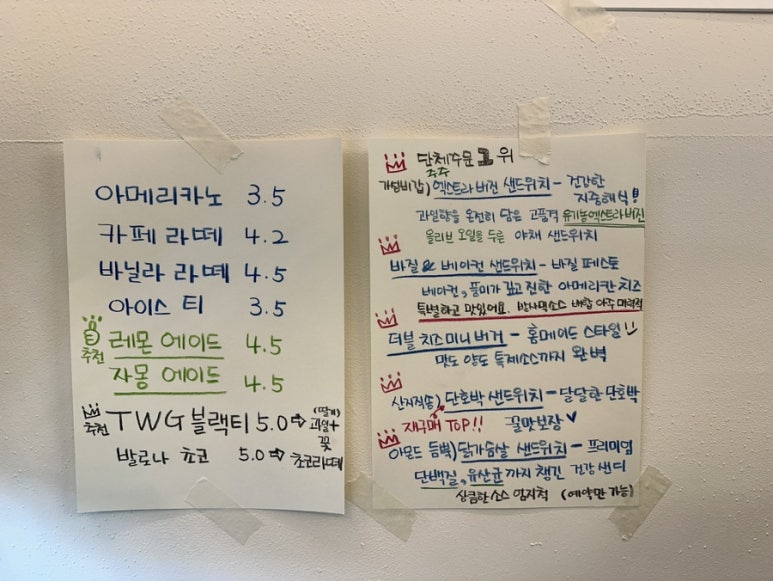 아메리카노 3.5
카페 라떼 4.2
바닐라 라떼 4.5
아이스 티 3.5
추천 레몬 에이드 4.5
자몽 에이드 4.5
추천 TWG 블랙티 5.0 ⇨ (딸기) 과일+꽃
발로나 초코 5.0 ⇨ 초코라떼
단체주문 1위
강추
가성비갑) 엑스트라 버진 샌드위치 - 건강한
지중해식!
과일향을 온전히 담은 고품격 유기농엑스트라버진
올리브 오일을 두른 야채 샌드위치
바질 & 베이컨 샌드위치 - 바질 페스토
베이컨, 풍미가 깊고 진한 아메리칸 치즈
특별하고 맛있어요. 소스 배합 아주 매력적
더블 치즈 미니 버거 - 홈메이드 스타일
맛도 양도 특제소스까지 완벽
산지직송) 단호박 샌드위치 - 달달한 단호박
재구매 TOP!! 꿀맛보장
아몬드 듬뿍) 닭가슴살 샌드위치 - 프리미엄
단백질, 유산균까지 챙긴 건강 샌디
상큼한 소스 엄지척 (예약만 가능)